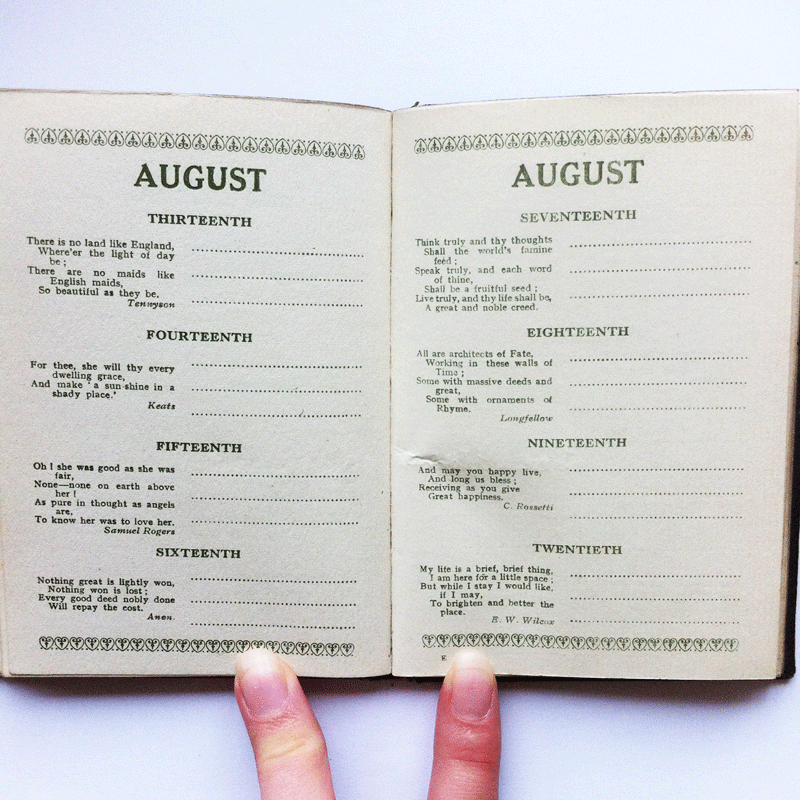 AUGUST
THIRTEENTH
There is no land like England,
Where'er the light of day
be ;
There are no maids like
English maids,
So beautiful as they be.
Tennyson
FOURTEENTH
For thee, she will thy every
dwelling grace,
And make ' a sun-shine in a
shady place.'
Keats
FIFTEENTH
Oh ! she was good as she was
fair,
None—none on earth above
her !
As pure in thought as angels
are,
To know her was to love her.
Samuel Rogers
SIXTEENTH
Nothing great is lightly won,
Nothing won is lost ;
Every good deed nobly done
Will repay the cost.
Anon.
AUGUST
SEVENTEENTH
Think truly and thy thoughts
Shall the world's famine
feed ;
Speak truly, and each word
of thine,
Shall be a fruitful seed ;
Live truly, and thy life shall be,
A great and noble creed.
EIGHTEENTH
All are architects of Fate,
Working in these walls of
Time ;
Some with massive deeds and
great,
Some with ornaments of
Rhyme.
Longfellow
NINETEENTH
And may you happy live,
And long us bless ;
Receiving as you give
Great happiness.
C. Rossetti
TWENTIETH
My life is a brief, brief thing,
I am here for a little space ;
But while I stay I would like,
if I may,
To brighten and better the
place.
E. W. Wilcox
g